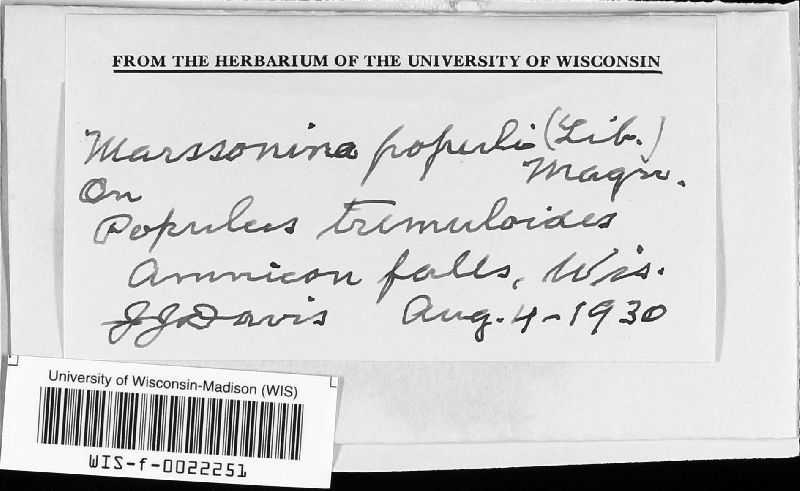 FROM THE HERBARIUM OF THE UNIVERSITY OF WISCONSIN
Marssonina populi (Lib.)
Magn.
On
Populus tremuloides
Amnicon falls, Wis.
JJDavis Aug. 4-1930
University of Wisconsin-Madison (WIS)
WIS-f-0022251